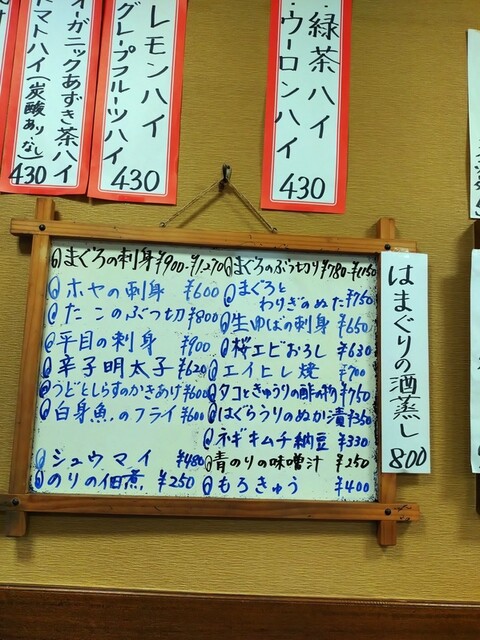 ・緑茶ハイ
・ウーロンハイ
430
レモンハイ
グレープフルーツハイ
430
オーガニックあずき茶ハイ
トマトハイ(炭酸あり・なし)
430
まぐろの刺身 ¥900-¥1,270
ホヤの刺身 ¥600
たこのぶつ切 ¥800
平目の刺身 ¥900
辛子明太子 ¥620
うどとしらすのかきあげ ¥600
白身魚のフライ ¥600
シュウマイ ¥480
のりの佃煮 ¥250
まぐろのぶつ切り ¥780-¥1150
まぐろと
わけぎのぬた ¥750
生ゆばの刺身 ¥650
桜エビおろし ¥630
エイヒレ焼 ¥700
タコときゅうりの酢の物 ¥750
はぐらうりのぬか漬 ¥350
ネギキムチ納豆 ¥330
青のりの味噌汁 ¥250
もろきゅう ¥400
はまぐりの酒蒸し
800